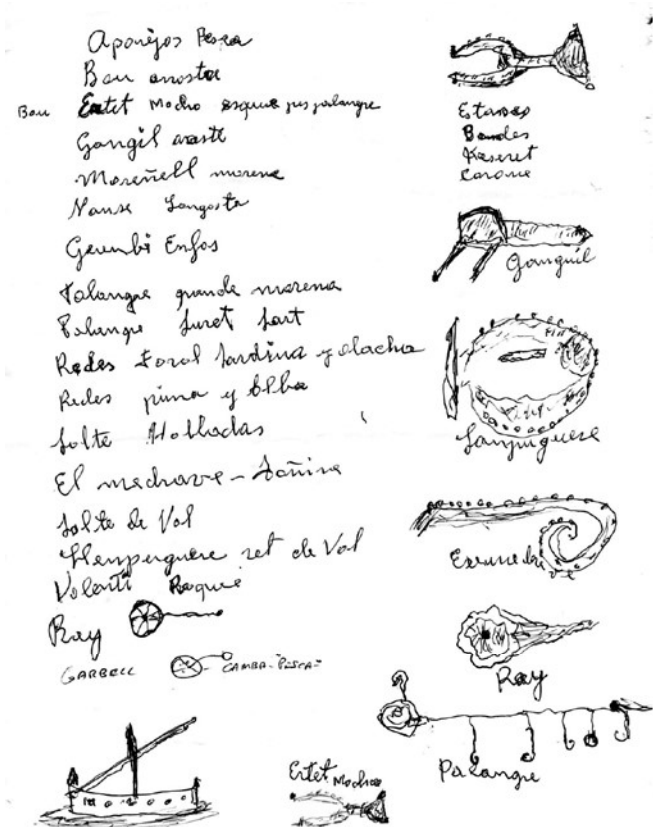 Aparejos Pesca
Bou arrosta
Bou Ertet Mocho esque pes palangre
Gangil araste
Moreñell morena
Nanse Langosta
Gerumbi Enfos
Palangre grande morena
Palangre furet fart
Redes Forol Sardina y alacha
Redes prima y Bolba
Solte Holladas
El madrave - Toñina
Solte de Vol
Llempuguere ret de Vol
Volenti Roquie
Ray
GARBELL CAMBA-PESCA-
Estasas
Bandes
Kaseret
Corone
Ganguil
Lampuguere
Ray
Palangre
Ertet Mochao